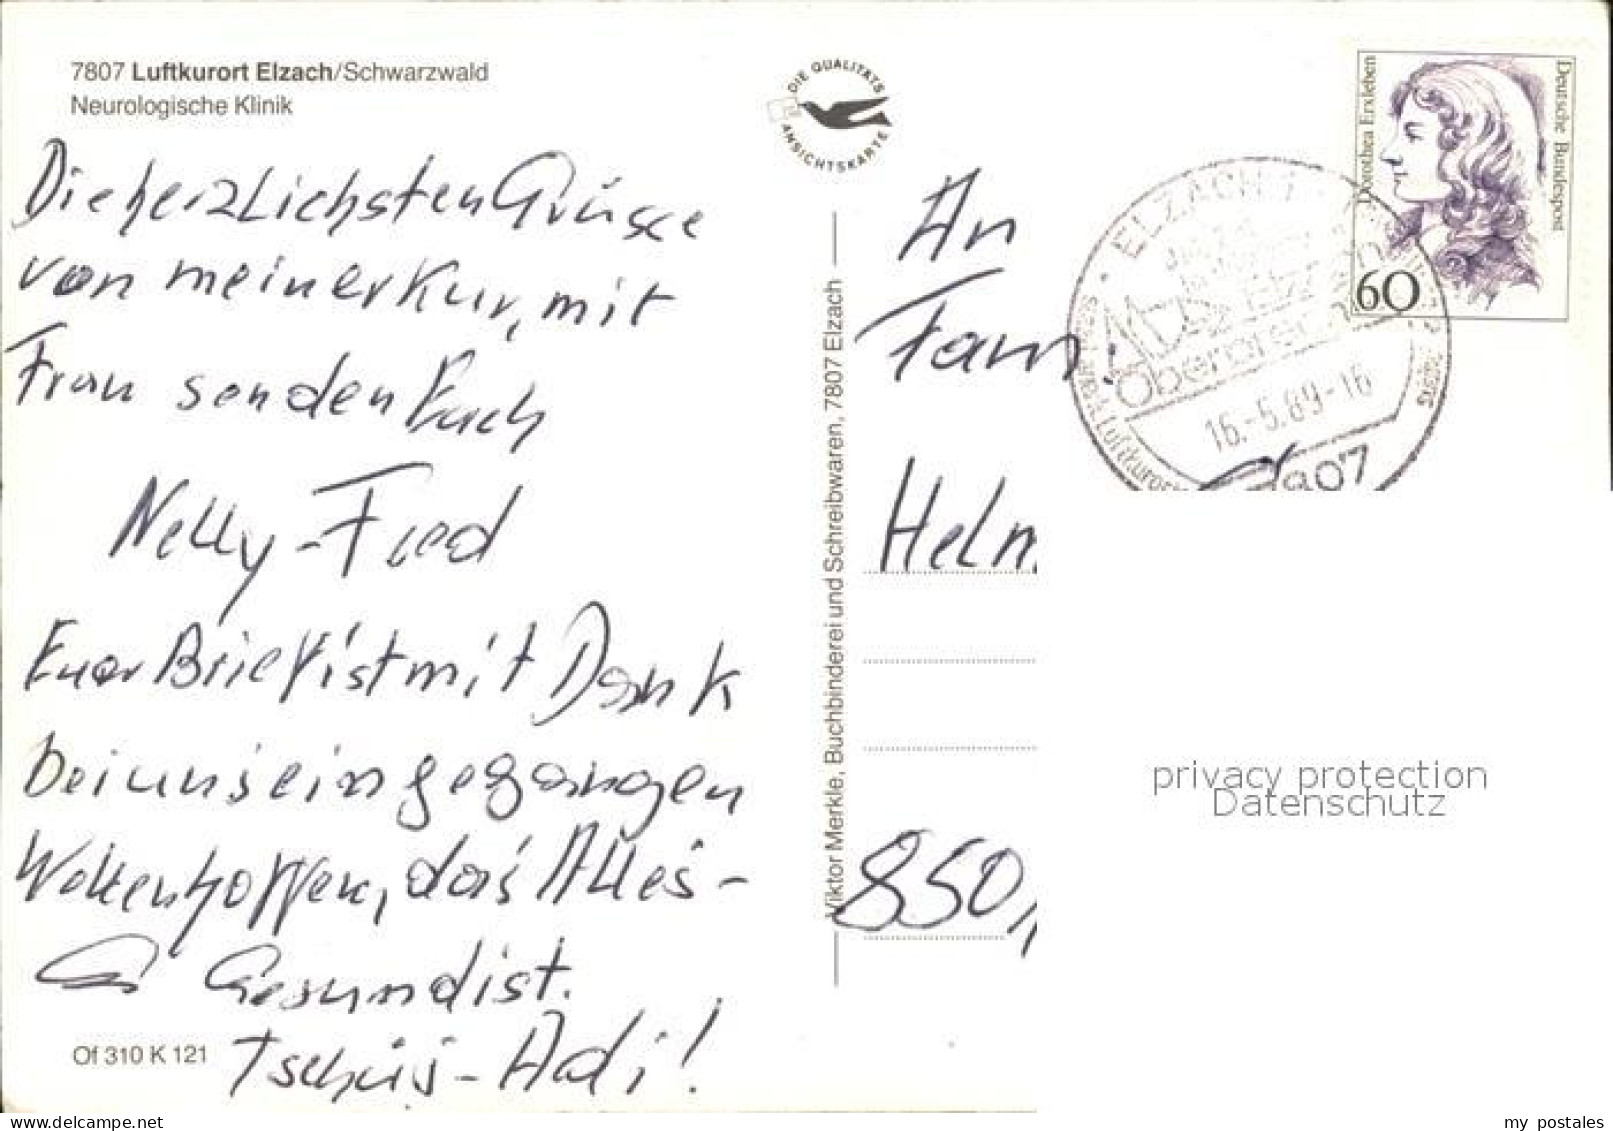 7807 Luftkurort Elzach/Schwarzwald
Neurologische Klinik
Die herzlichsten Grüsse
von meiner Kur, mit
Frau senden Euch
Nelly-Fred
Euer Brief ist mit Dank
bei uns eingegangen
Wollen hoffen, das Alles-
Gesund ist.
Tschüs-Adi!
Of 310 K 121
DIE QUALITÄTS
ANSICHTSKARTE
Viktor Merkle, Buchbinderei und Schreibwaren, 7807 Elzach
An
Fam.
Helm
850
Dorothea Erxleben
Deutsche Bundespost
60
ELZACH
Luftkurort
16.-5.89-16
7807
privacy protection
Datenschutz
delcampe.net
my_postales